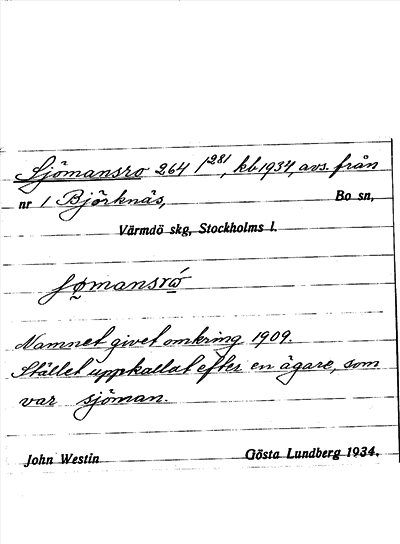 Sjömansro 264 1²⁸¹, kb 1934, avs. från
nr 1 Björknäs, Bo sn,
Värmdö skg, Stockholms l.
Namnet givet omkring 1909.
Stället uppkallat efter en ägare, som
var sjöman.
John Westin Gösta Lundberg 1934.